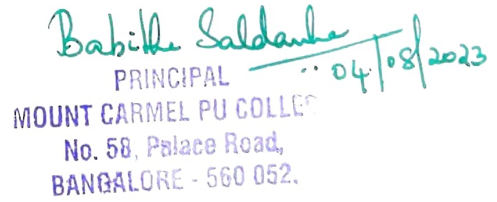 Babitha Saldanha
04/08/2023
PRINCIPAL
MOUNT CARMEL PU COLLE
No. 58, Palace Road,
BANGALORE - 560 052.